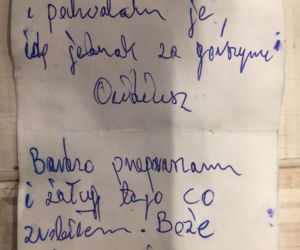 i pochwalam je,
idę jednak za gorszymi
Owidiusz
Bardzo przepraszam
i żałuję tego co
zrobiłem. Boże